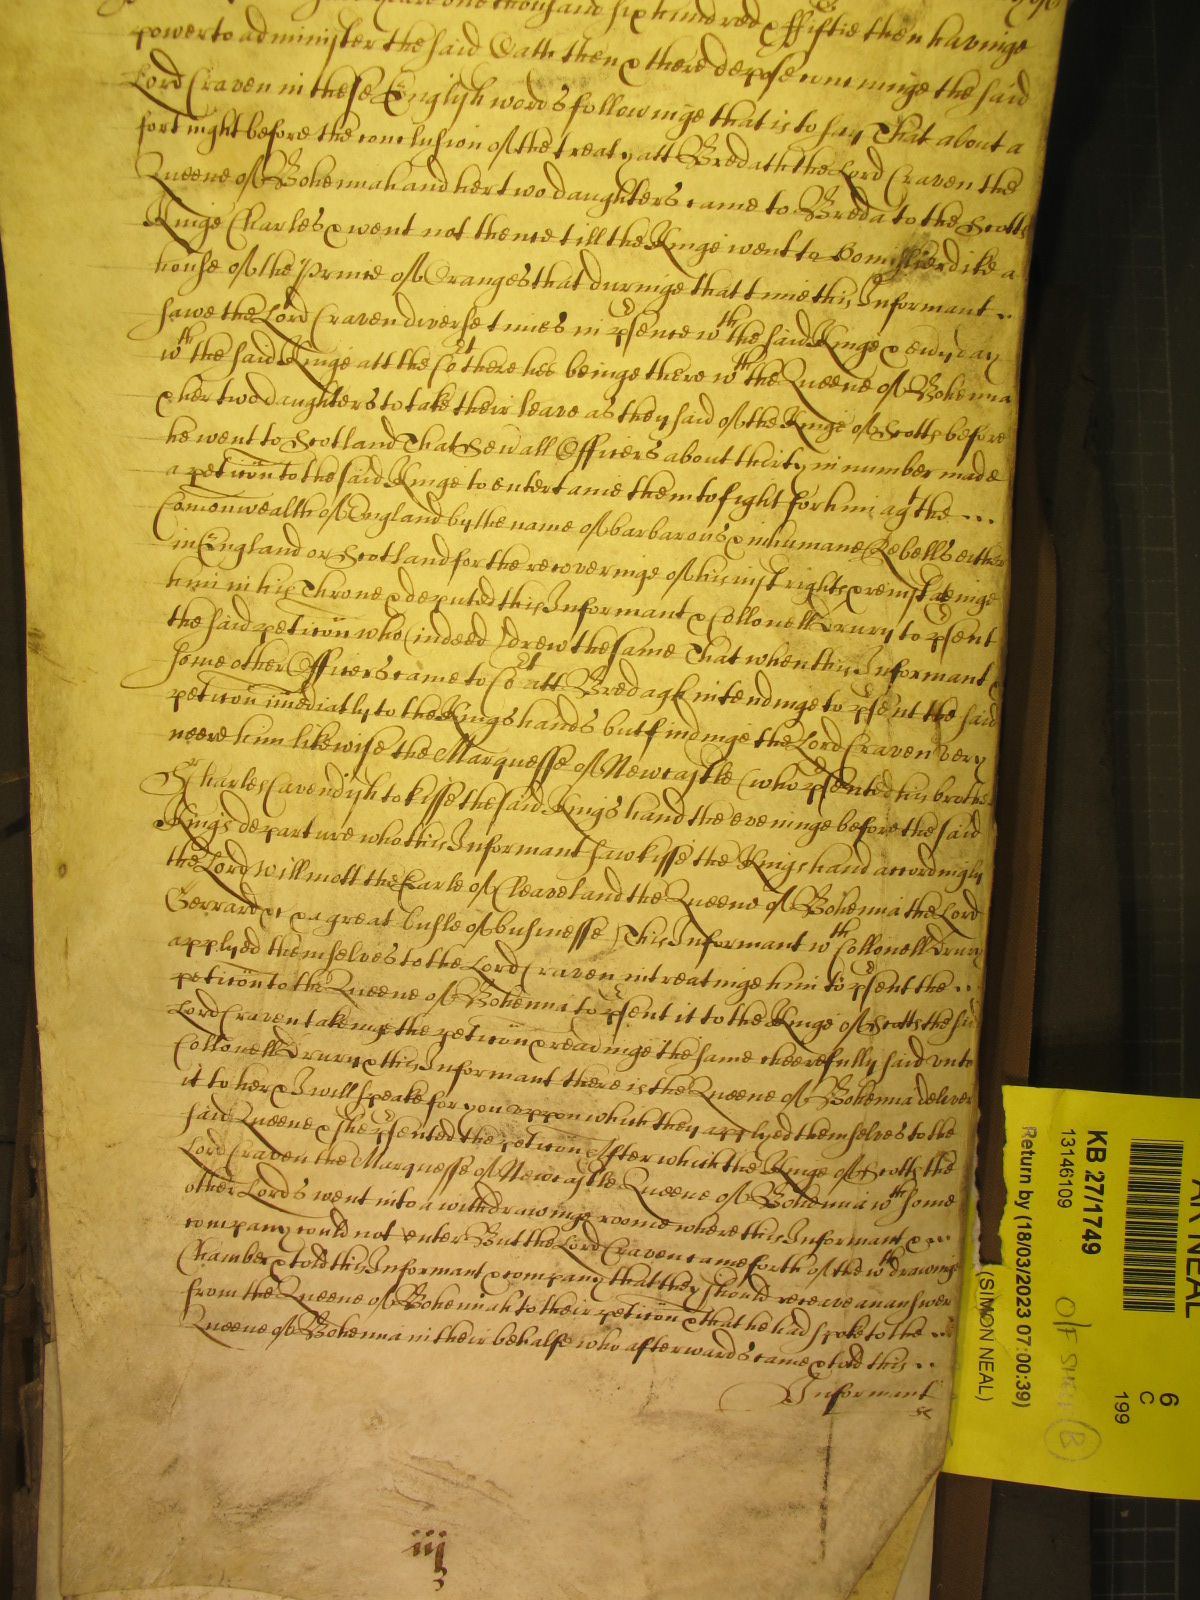 yeare one thousand six hundred & ffiftie then havinge
power to administer the said Oath then & there depose concerninge the said
Lord Craven in these English words followinge that is to say That about a
fortnight before the conclusion of the treaty att Bredath the Lord Craven the
Queene of Bohemiah and her two daughters came to Breda to the Scotts
Kinge Charles & went not thence till the Kinge went to a
house of the Prince of Oranges that duringe that time this Informant ..
sawe the Lord Craven diverse times in psence wth the said Kinge & every day
wth the said Kinge att the Cot there hee beinge there wth the Queene of Bohemia
& her two daughters to take their leave as they said of the Kinge of Scotts before
he went to Scotland That sewall Officers about thirty in number made
a peticon to the said Kinge to entertaine them to fight for him agt the ...
Comonwealth of England by the name of barbarous & inhumane Rebells either
in England or Scotland for the recoveringe of his just rights & reinstateinge
him in his Throne & deputed this Informant & Collonell Drury to psent
the said peticon who (indeed) drew the same That when this Informant &
some other Officers came to Cot att Bredagh intendinge to psent the said
peticon imediatly to the Kings hands but findinge the Lord Craven very
neere him likewise the Marquesse of Newcastle (who psented his brother
Sr Charles Cavendish to kisse the said Kings hand the eveninge before the said
Kings departure who this Informant saw kisse the Kings hand accordingly
the Lord Willmott the Earle of Cleaveland the Queene of Bohemia the Lord
Gerrard &c & a great busle of businesse) This Informant wth Collonell Drury
applyed themselves to the Lord Craven intreatinge him to psent the ..
peticon to the Queene of Bohemia to psent it to the Kinge of Scotts the said
Lord Craven takeinge the peticon & readinge the same cheerefully said unto
Collonell Drury & this Informant there is the Queene of Bohemia deliver
it to her & I will speake for you uppon which they applyed themselves to the
said Queene & she psented the peticon After which the Kinge of Scotts the
Lord Craven the Marquesse of Newcastle Queene of Bohemia wth some
other Lords went into a withdrawinge roome where this Informant & ...
company could not enter But the Lord Craven came forth of the wthdrawinge
Chamber & told this Informant & company that they should receave an answer
from the Queene of Bohemiah to their peticon & that he had spoke to the ..
Queene of Bohemia in their behalfe who afterwards came & told this ..
Informant
iij
AN NEAL
6
C
199
KB 27/1749
13146109
O/F SHELF (B)
Return by (18/03/2023 07:00:39)
(SIMON NEAL)